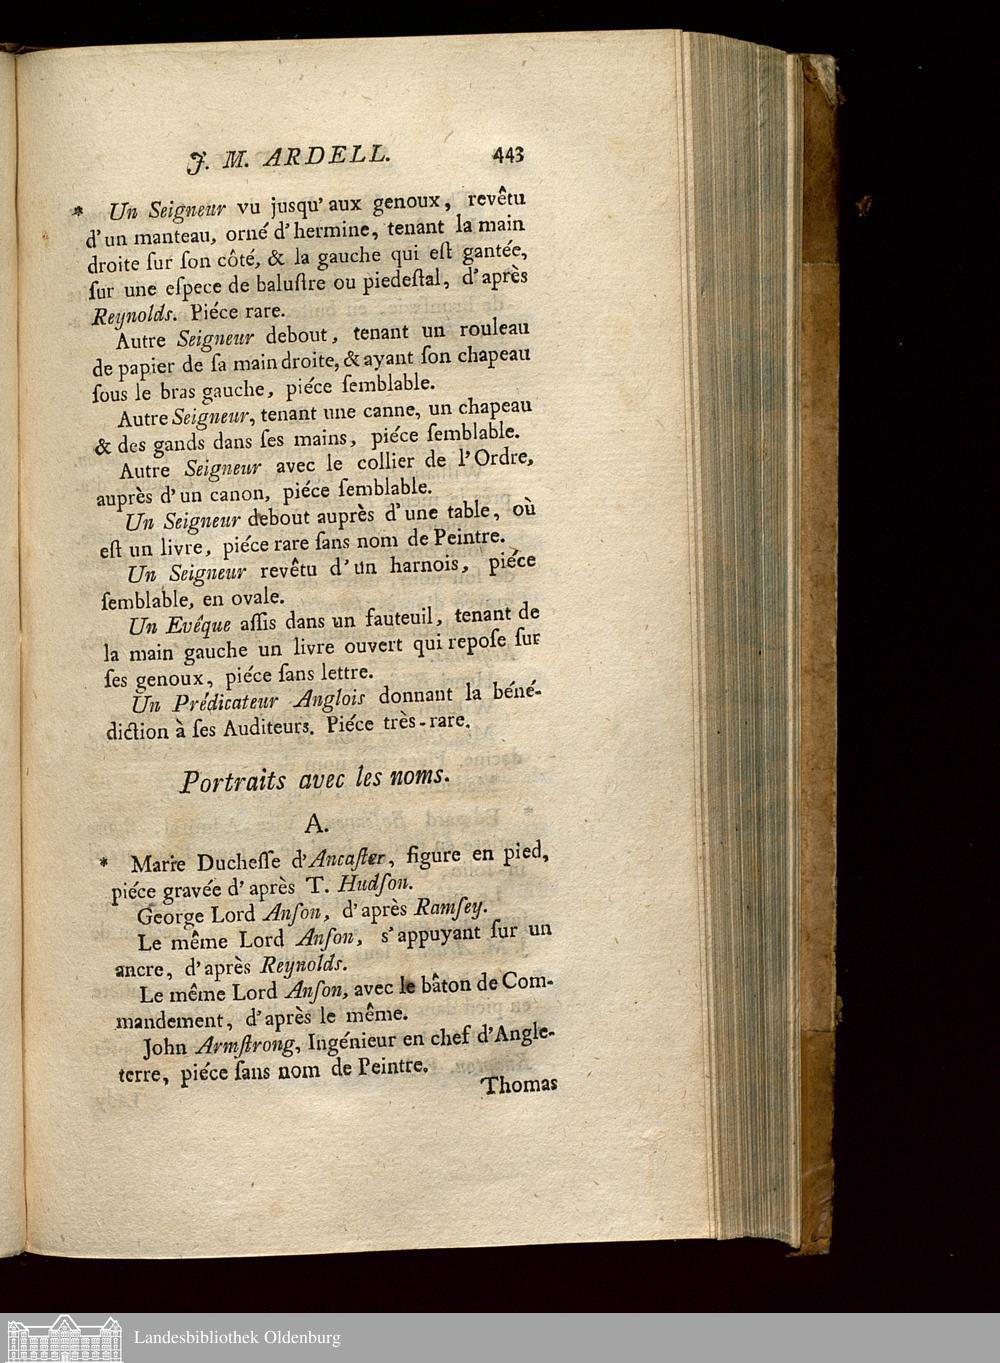 J. M. ARDELL. 443
* Un Seigneur vu jusqu' aux genoux, revêtu
d' un manteau, orné d' hermine, tenant la main
droite ſur ſon côté, & la gauche qui eſt gantée,
ſur une eſpece de baluſtre ou piedeſtal, d' après
Reynolds. Piéce rare.
Autre Seigneur debout, tenant un rouleau
de papier de ſa main droite, & ayant ſon chapeau
ſous le bras gauche, piéce ſemblable.
Autre Seigneur, tenant une canne, un chapeau
& des gands dans ſes mains, piéce ſemblable.
Autre Seigneur avec le collier de l' Ordre,
auprès d' un canon, piéce ſemblable.
Un Seigneur debout auprès d' une table, où
eſt un livre, piéce rare ſans nom de Peintre.
Un Seigneur revêtu d' un harnois, piéce
ſemblable, en ovale.
Un Evêque aſſis dans un fauteuil, tenant de
la main gauche un livre ouvert qui repoſe ſur
ſes genoux, piéce ſans lettre.
Un Prédicateur Anglois donnant la béné-
diction à ſes Auditeurs. Piéce très-rare.
Portraits avec les noms.
A.
* Marie Ducheſſe d'Ancaſter, figure en pied,
piéce gravée d' après T. Hudſon.
George Lord Anſon, d' après Ramſey.
Le même Lord Anſon, s' appuyant ſur un
ancre, d' après Reynolds.
Le même Lord Anſon, avec le bâton de Com-
mandement, d' après le même.
John Armſtrong, Ingénieur en chef d'Angle-
terre, piéce ſans nom de Peintre.
Thomas
Landesbibliothek Oldenburg